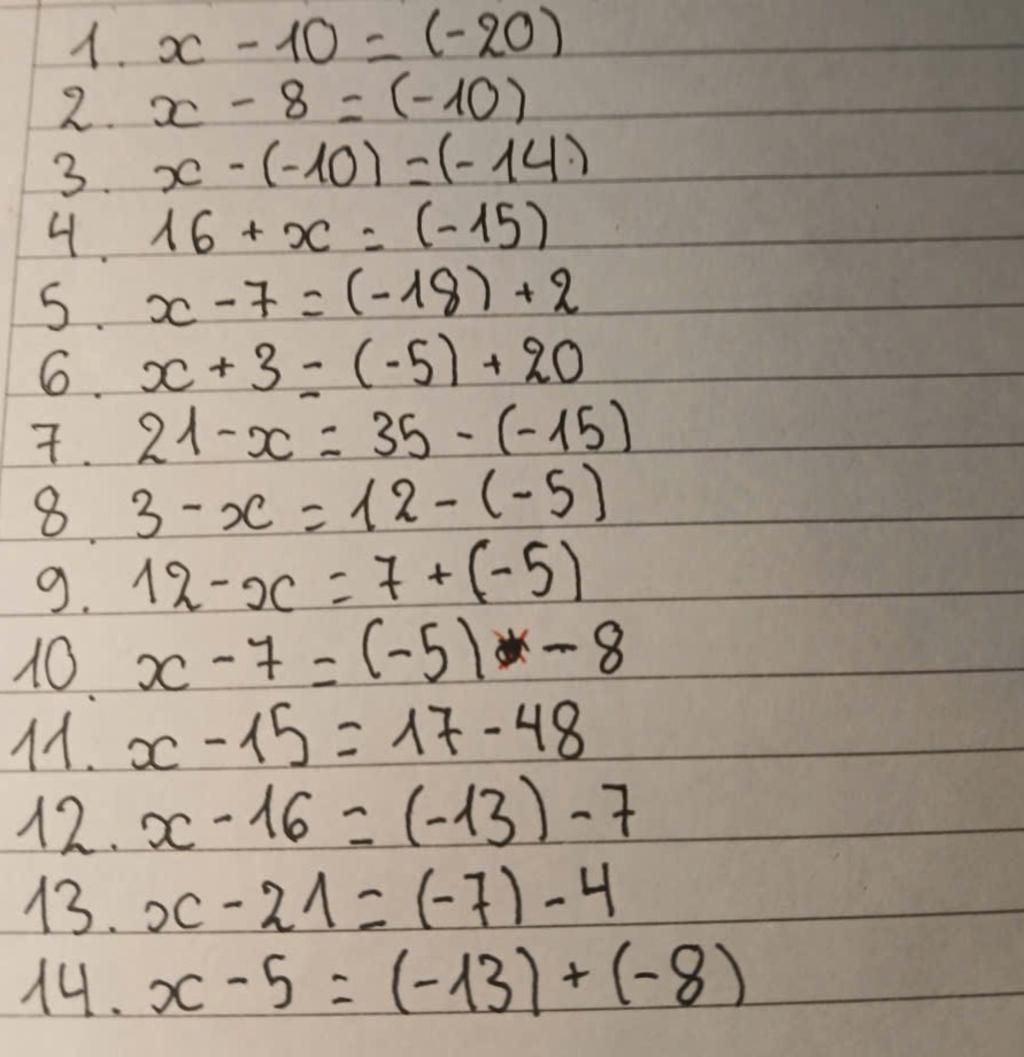 1. x - 10 = (-20)
2. x - 8 = (-10)
3. x - (-10) = (-14)
4. 16 + x = (-15)
5. x - 7 = (-18) + 2
6. x + 3 = (-5) + 20
7. 21 - x = 35 - (-15)
8. 3 - x = 12 - (-5)
9. 12 - x = 7 + (-5)
10. x - 7 = (-5) - 8
11. x - 15 = 17 - 48
12. x - 16 = (-13) - 7
13. x - 21 = (-7) - 4
14. x - 5 = (-13) + (-8)